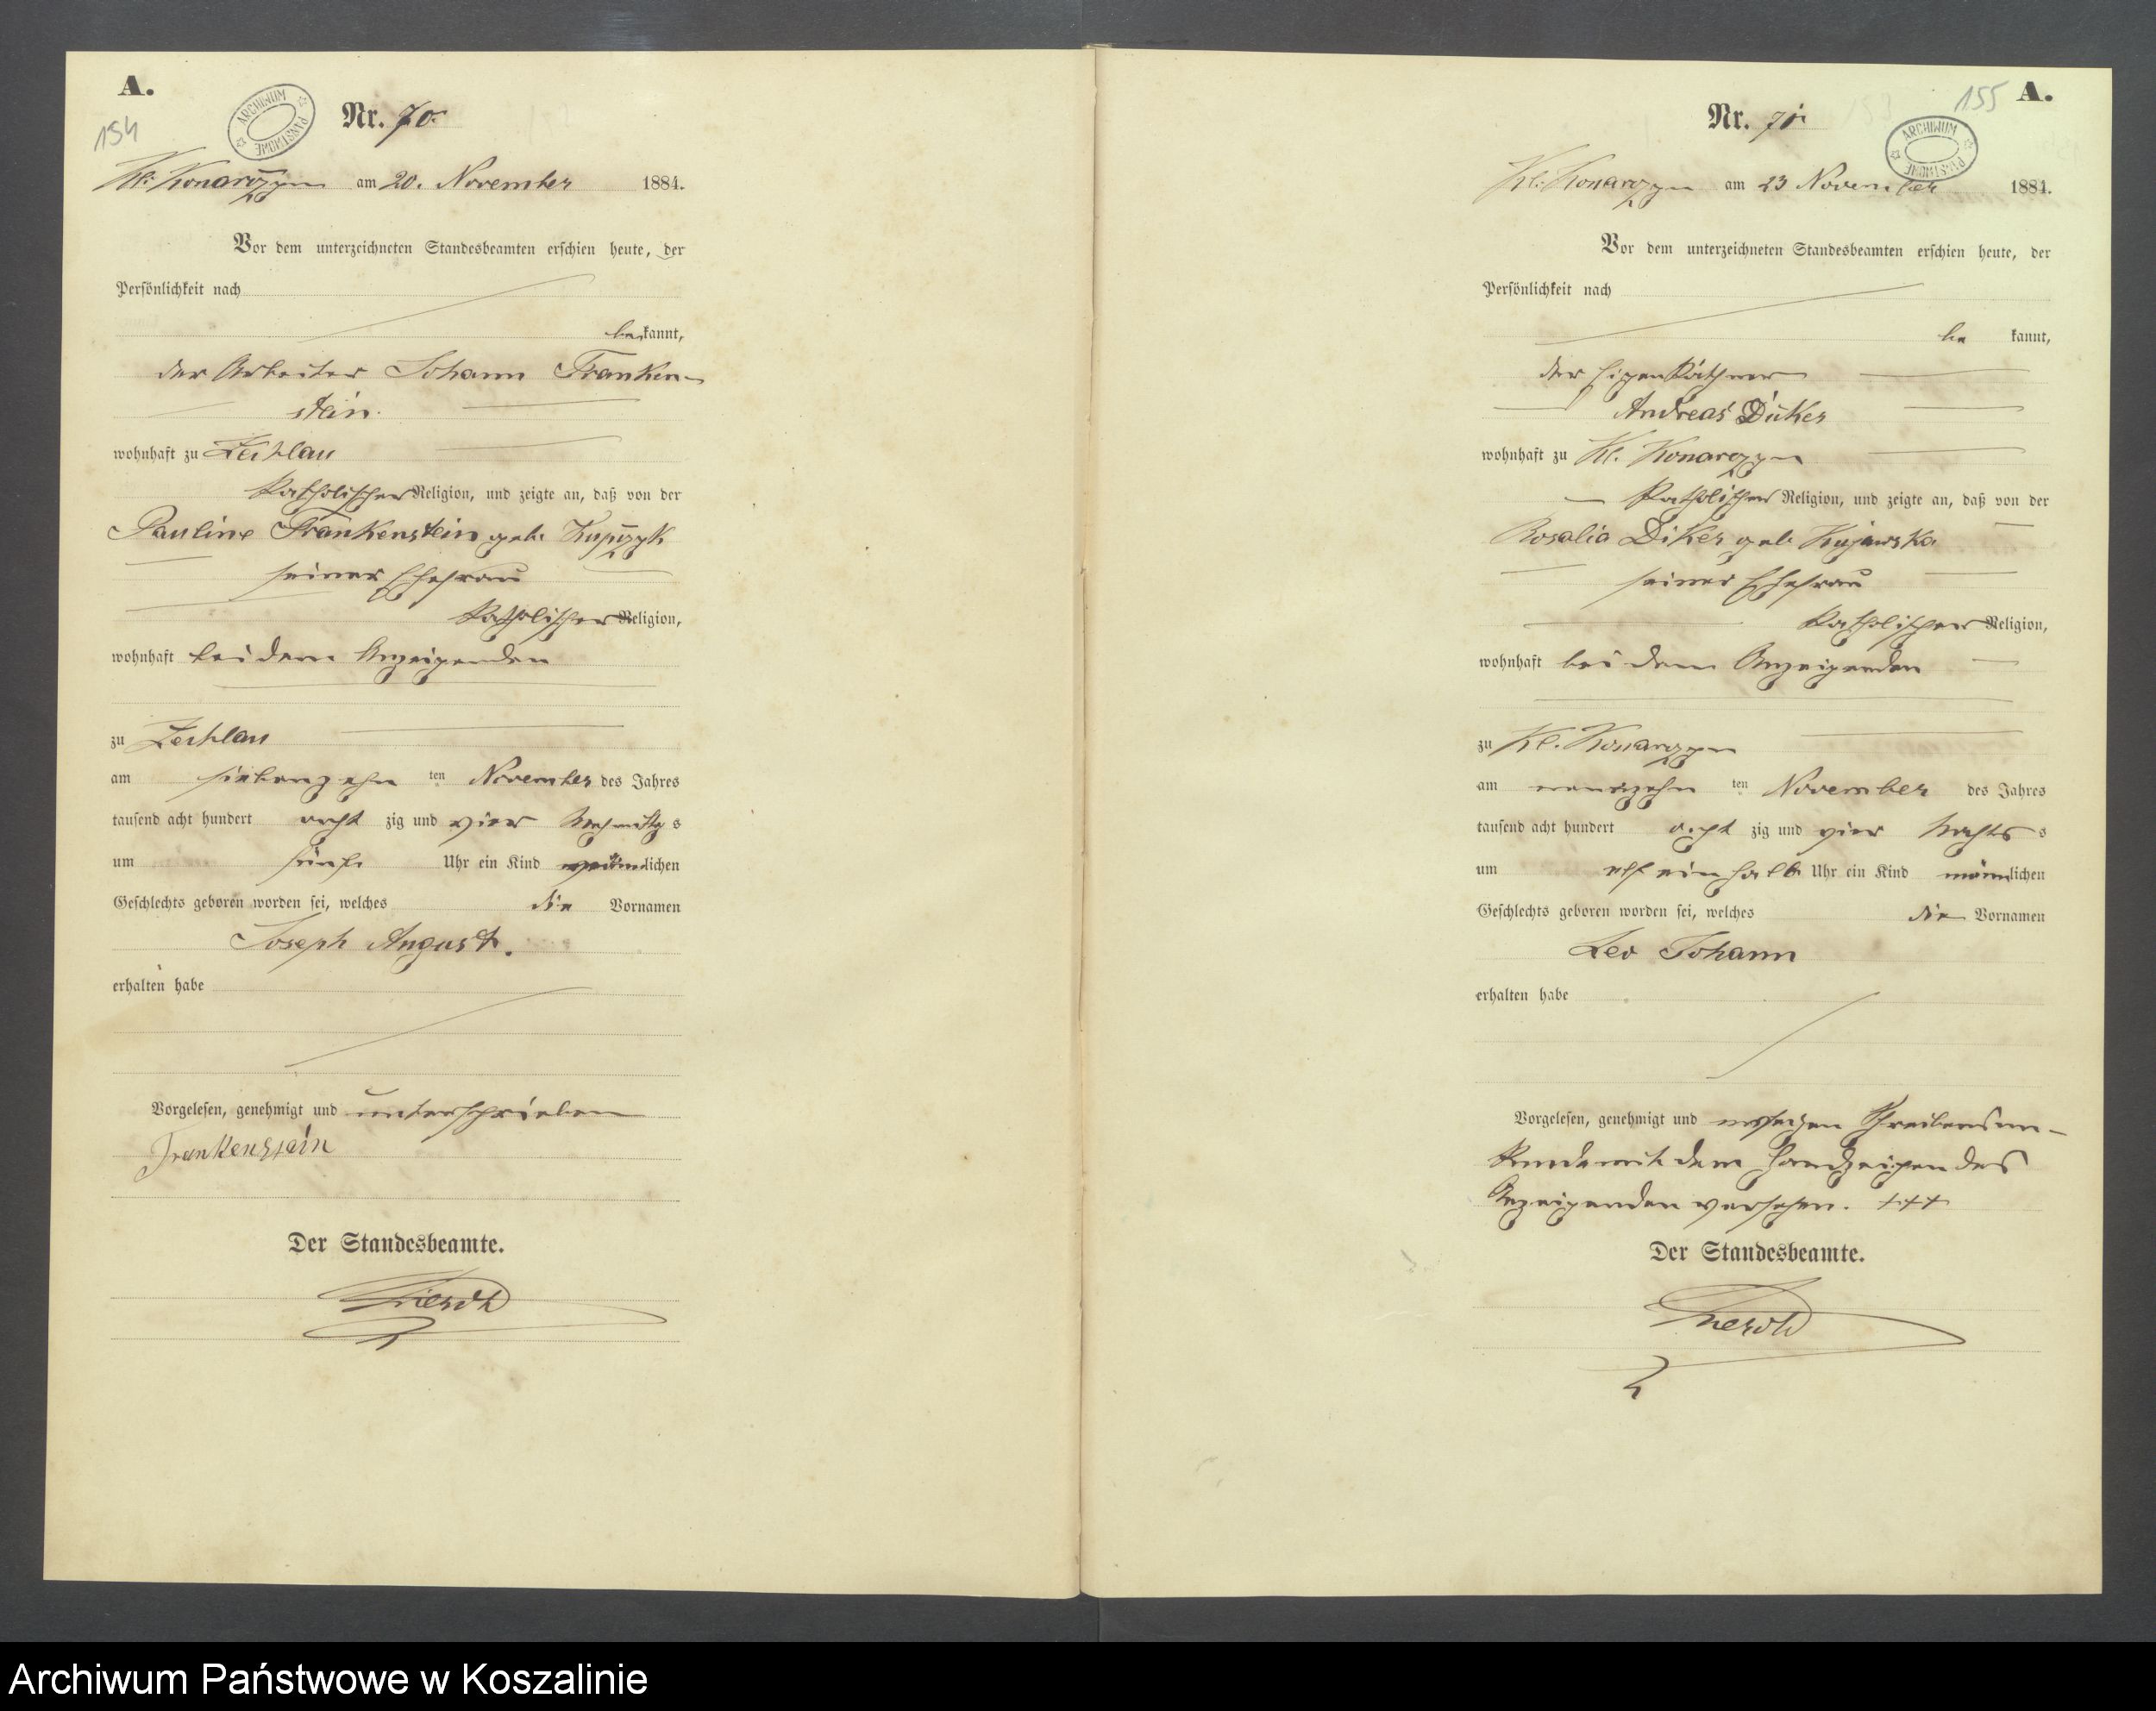 A.
154
ARCHIWUM PAŃSTWOWE
Nr. 70.
Kl: Konarczyn am 20. November 1884.
Vor dem unterzeichneten Standesbeamten erschien heute, der
Persönlichkeit nach
bekannt,
der Arbeiter Johann Franken-
stein.
wohnhaft zu Zechlau
katholischer Religion, und zeigte an, daß von der
Pauline Frankenstein geb.
seiner Ehefrau
katholischer Religion,
wohnhaft bei dem Anzeigenden
zu Zechlau
am siebenzehn ten November des Jahres
tausend acht hundert acht zig und vier Nachmittags
um fünf Uhr ein Kind männlichen
Geschlechts geboren worden sei, welches die Vornamen
Joseph August.
erhalten habe
Vorgelesen, genehmigt und unterschrieben
Frankenstein
Der Standesbeamte.
155
A.
ARCHIWUM PAŃSTWOWE
Nr. 71
Kl: Konarczyn am 23 November 1884.
Vor dem unterzeichneten Standesbeamten erschien heute, der
Persönlichkeit nach
be kannt,
der Eigenkäthner
Andreas Düker
wohnhaft zu Kl. Konarczyn
katholischer Religion, und zeigte an, daß von der
Rosalia Diker geb Kujawska
seiner Ehefrau
katholischer Religion,
wohnhaft bei dem Anzeigenden
zu Kl. Konarczyn
am neunzehn ten November des Jahres
tausend acht hundert acht zig und vier Nachts s
um elf ein halb Uhr ein Kind männlichen
Geschlechts geboren worden sei, welches die Vornamen
Leo Johann
erhalten habe
Vorgelesen, genehmigt und wegen Schreibensun-
kunde mit dem Handzeichen des
Anzeigenden versehen. +++
Der Standesbeamte.
Archiwum Państwowe w Koszalinie